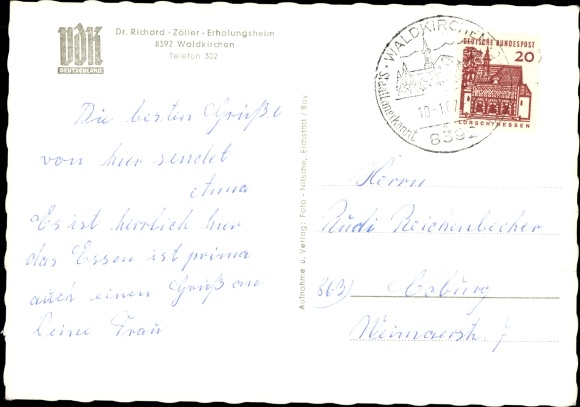 VdK
DEUTSCHLAND
Dr. Richard - Zöller - Erholungsheim
8392 Waldkirchen
Telefon 302
Die besten Grüße
von hier sendet
Anna
Es ist herrlich hier
das Essen ist prima
auch einen Gruß an
Deine Frau
Aufnahme u. Verlag: Foto - Nitsche, Elmstatt / Bay
WALDKIRCHEN
Staatl. anerkannt
8392
DEUTSCHE BUNDESPOST
20
LORSCH/HESSEN
Herrn
Rudi Reichenbecher
863) Coburg
Weimaerstr. 7